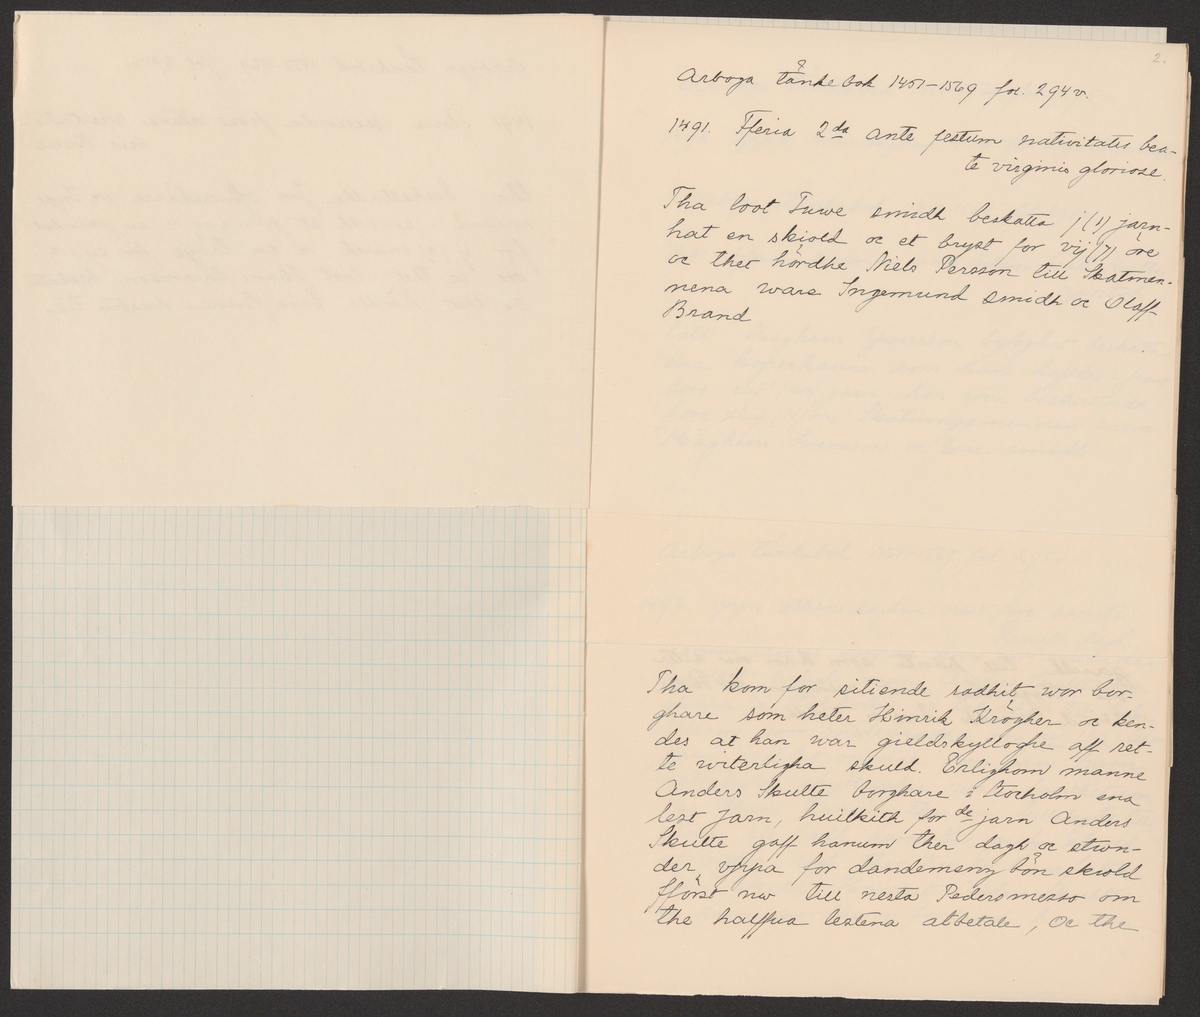 2.
Arboga tänkebok 1451–1569 fol. 294v.
1491. Fferia 2da ante festum nativitatis bea-
te virginis gloriose.
Tha loot Tuwe smidh beskatta j (1) jarn-
hat en skiold oc et bryst for vij (7) öre
oc thet hördhe Niels Persson till Skatmen-
nena ware Ingemund smidh oc Olaff
Brand
Tha kom for sitiende radhit wor bor-
ghare som heter Hinrik Krögher oc ken-
des at han war gieldskylloghe aff ret-
te witerligha skuld. Erlighom manne
Anders Skulte borghare i Stocholm ena
lest Jarn, huilkith for de jarn Anders
Skulte gaff hanum ther dagh oc stwn-
der vppa for dandemenz bön skiold
fförst nw till nesta Pedersmesso om
the halffua lestena atbetale, Oc the